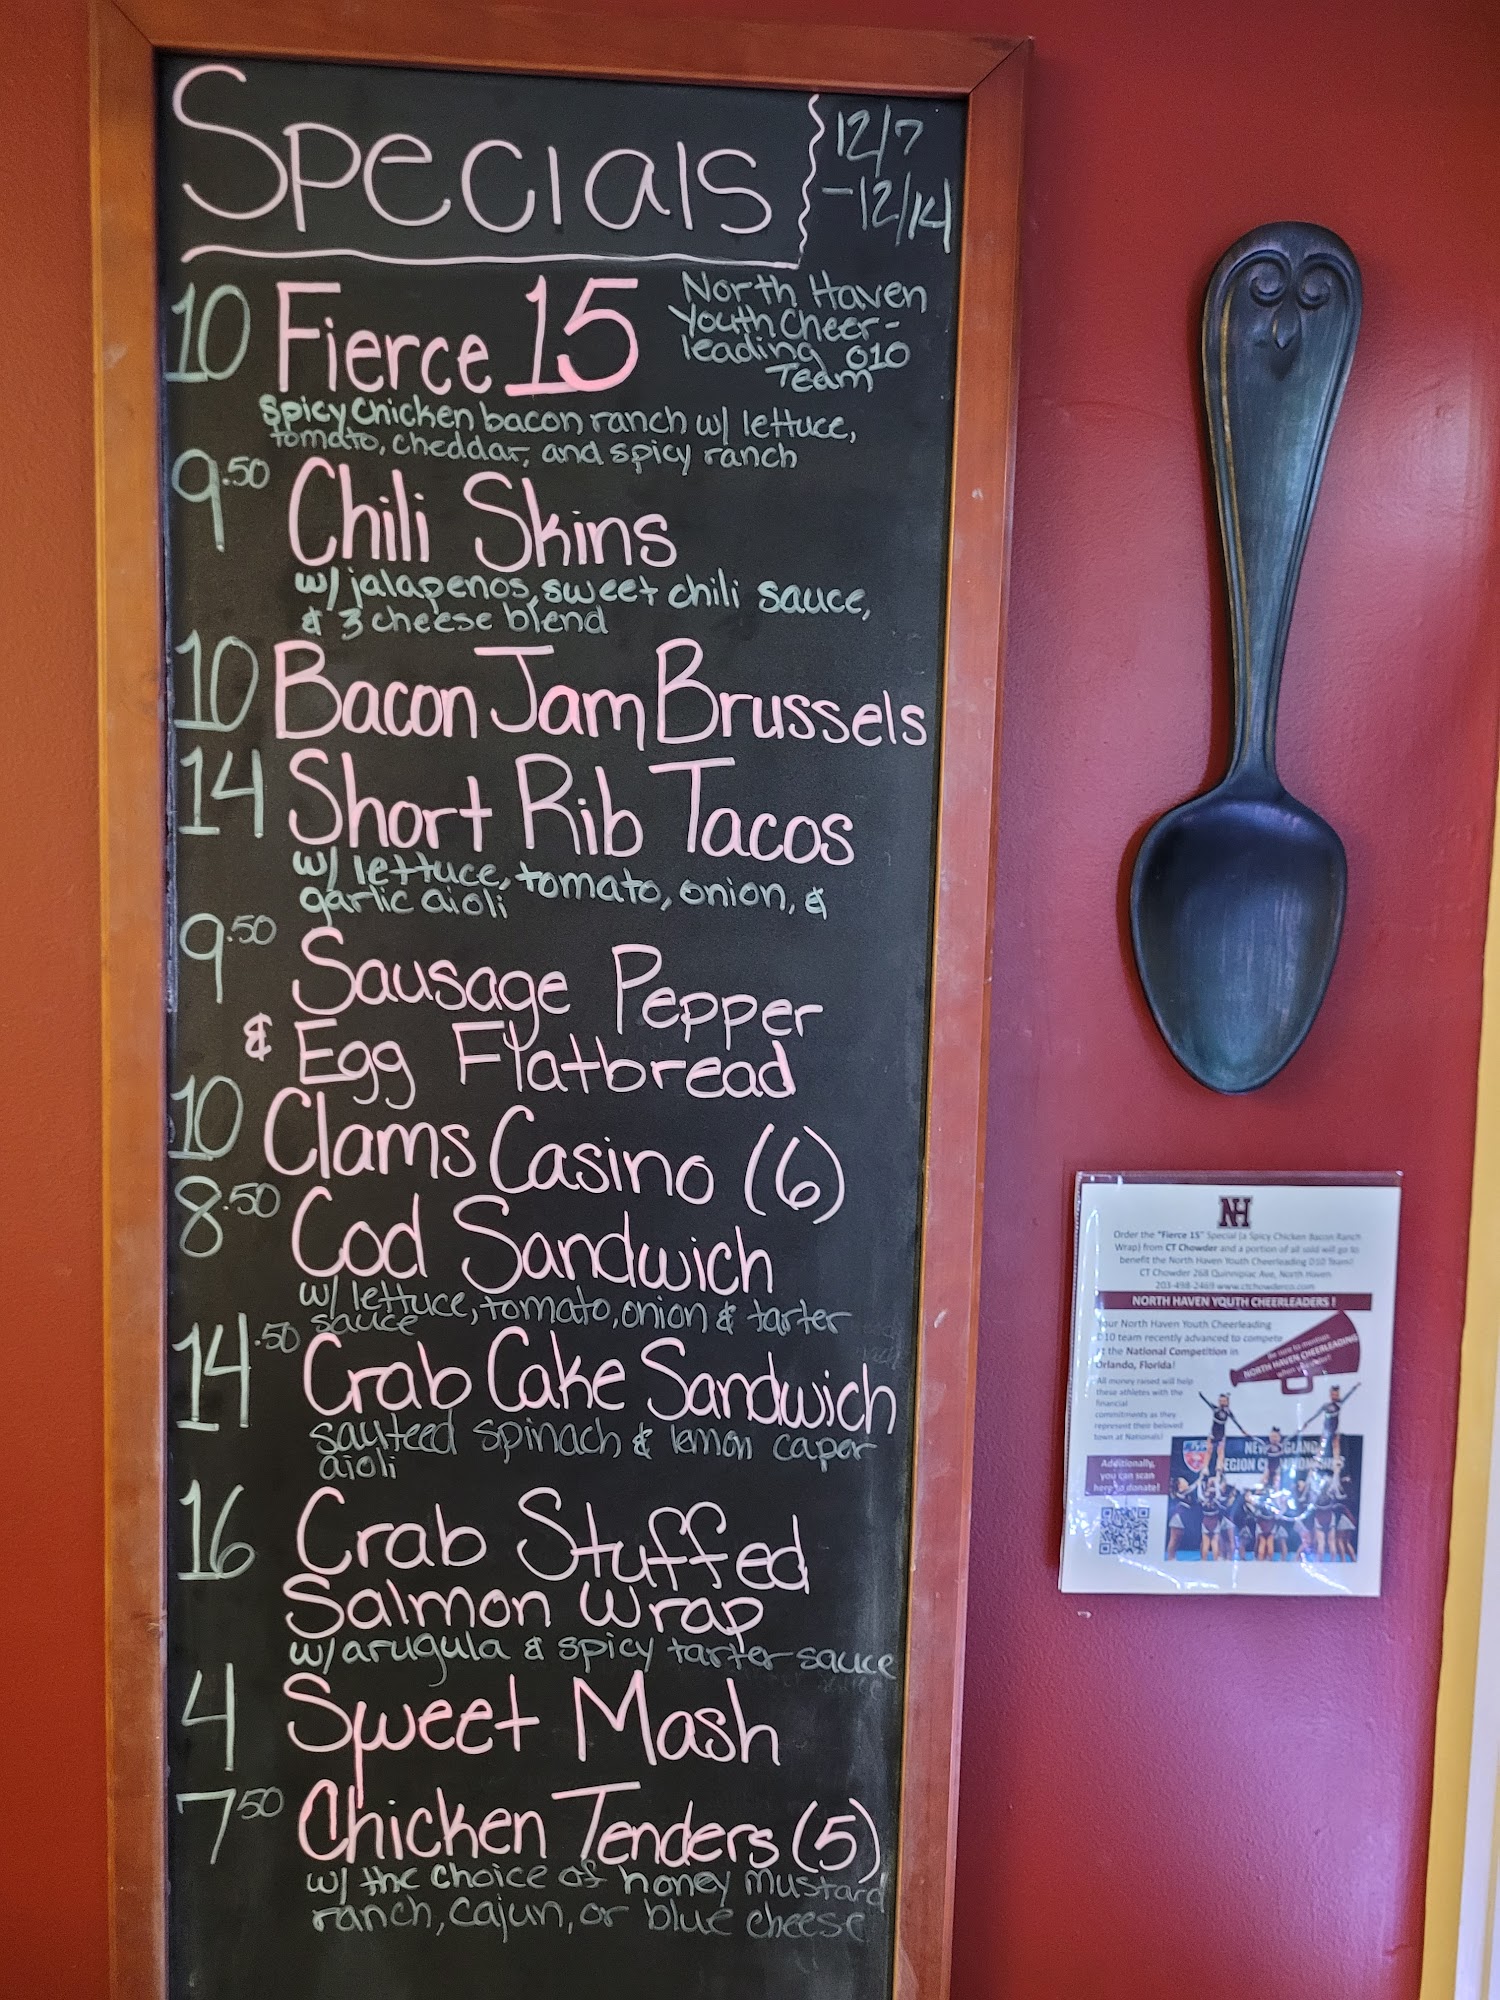 Specials
12/7
-12/14
10 Fierce 15
North Haven
Youth Cheer-
leading 010
Team
Spicy Chicken bacon ranch w/ lettuce,
tomato, cheddar, and spicy ranch
9.50 Chili Skins
w/ jalapenos, sweet chili sauce,
& 3 cheese blend
10 Bacon Jam Brussels
14 Short Rib Tacos
w/ lettuce, tomato, onion, &
garlic aioli
9.50 Sausage Pepper
& Egg Flatbread
10 Clams Casino (6)
8.50 Cod Sandwich
w/ lettuce, tomato, onion & tarter
sauce
14.50 Crab Cake Sandwich
sauteed spinach & lemon caper
aioli
16 Crab Stuffed
Salmon Wrap
w/ arugula & spicy tarter sauce
4 Sweet Mash
7.50 Chicken Tenders (5)
w/ the choice of honey mustard
ranch, cajun, or blue cheese
NH
Order the "Fierce 15" Special (a Spicy Chicken Bacon Ranch
Wrap) from CT Chowder and a portion of all sold will go to
benefit the North Haven Youth Cheerleading D10 Team!
CT Chowder 268 Quinnipiac Ave, North Haven
203-498-2469 www.ctchowderco.com
NORTH HAVEN YOUTH CHEERLEADERS !
Your North Haven Youth Cheerleading
D10 team recently advanced to compete
at the National Competition in
Orlando, Florida!
Be sure to mention
NORTH HAVEN CHEERLEADING
All money raised will help
these athletes with the
financial
commitments as they
represent their beloved
town at Nationals!
Additionally,
you can scan
here to donate!
NEW ENGLAND
REGION